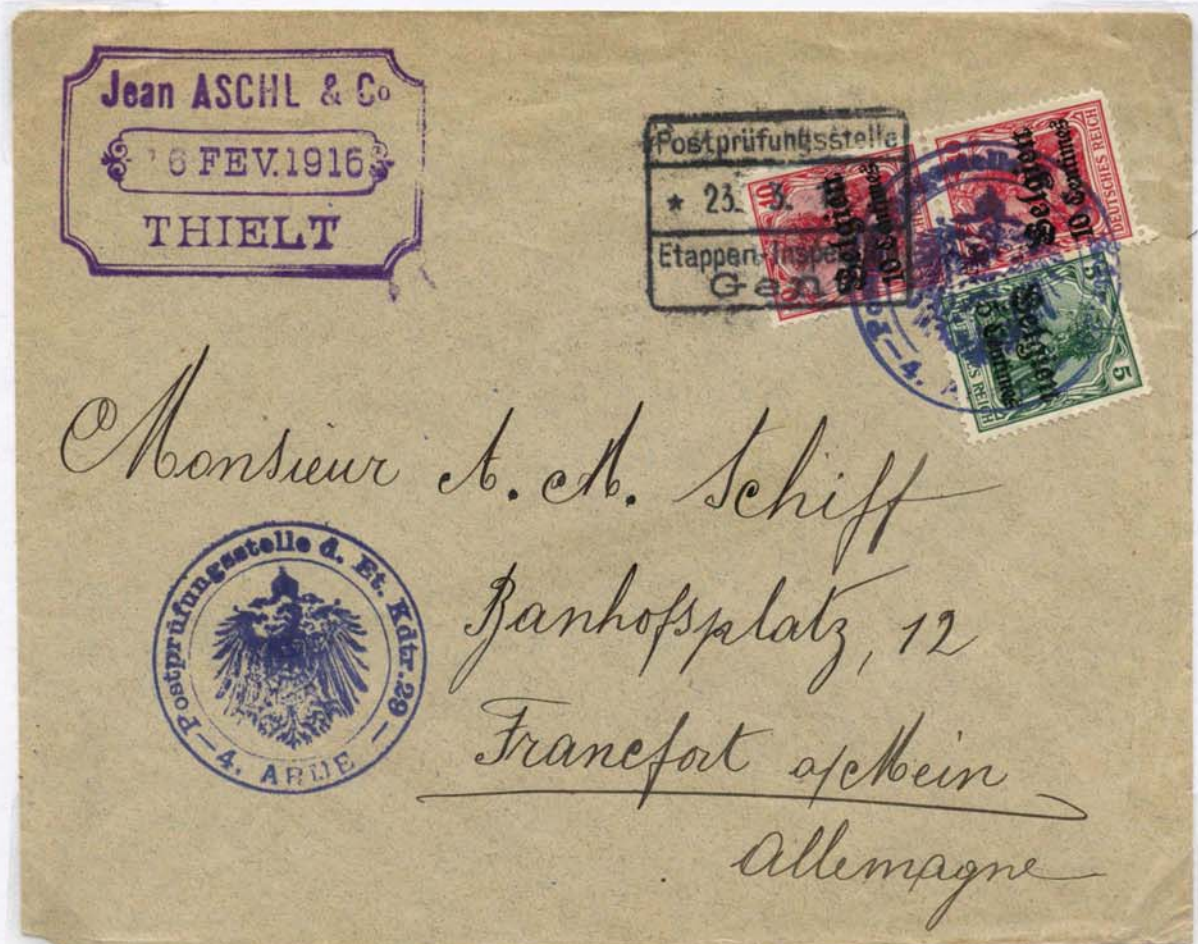 Jean ASCHL & Co
6 FEV. 1916
THIELT
Postprüfungsstelle
* 23. 3.
Etappen-Inspe
Gen
10
Belgien
10 Centimes
Belgien
10 Centimes
DEUTSCHES REICH
5
Belgien
5 Centimes
ES REICH
5
4.
Monsieur A. M. Schiff
Banhofsplatz, 12
Francfort o/Mein
Allemagne
Postprüfungsstelle d. Et. Kdtr. 29
4. ARMEE